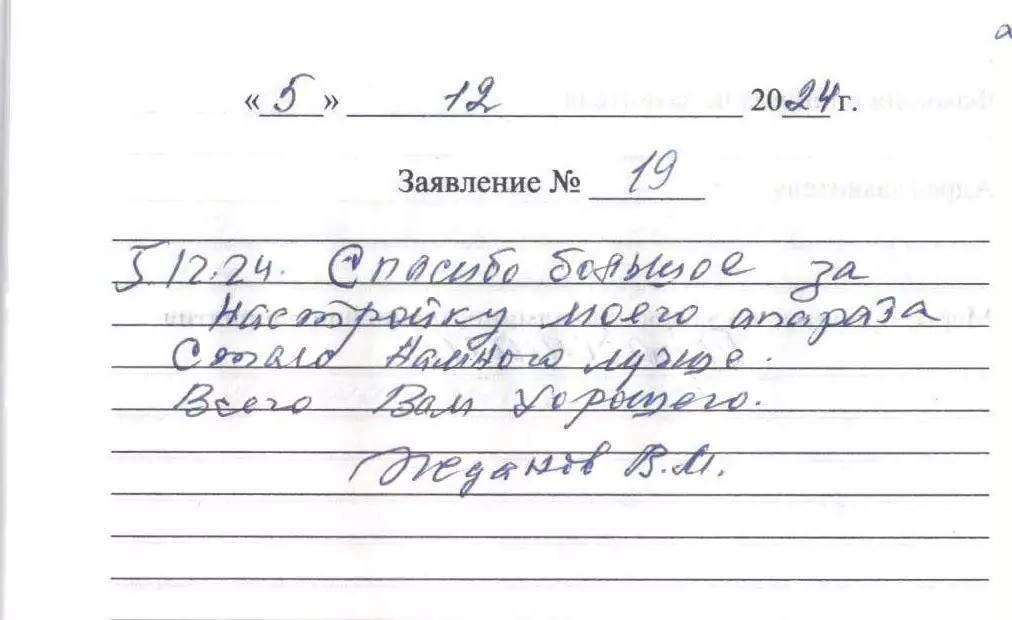 « 5 » 12 2024 г.
Заявление № 19
5 12.24. Спасибо большое за
настройку моего апараза
Стало намного лучше.
Всего Вам хорошего.
Жданов В.М.